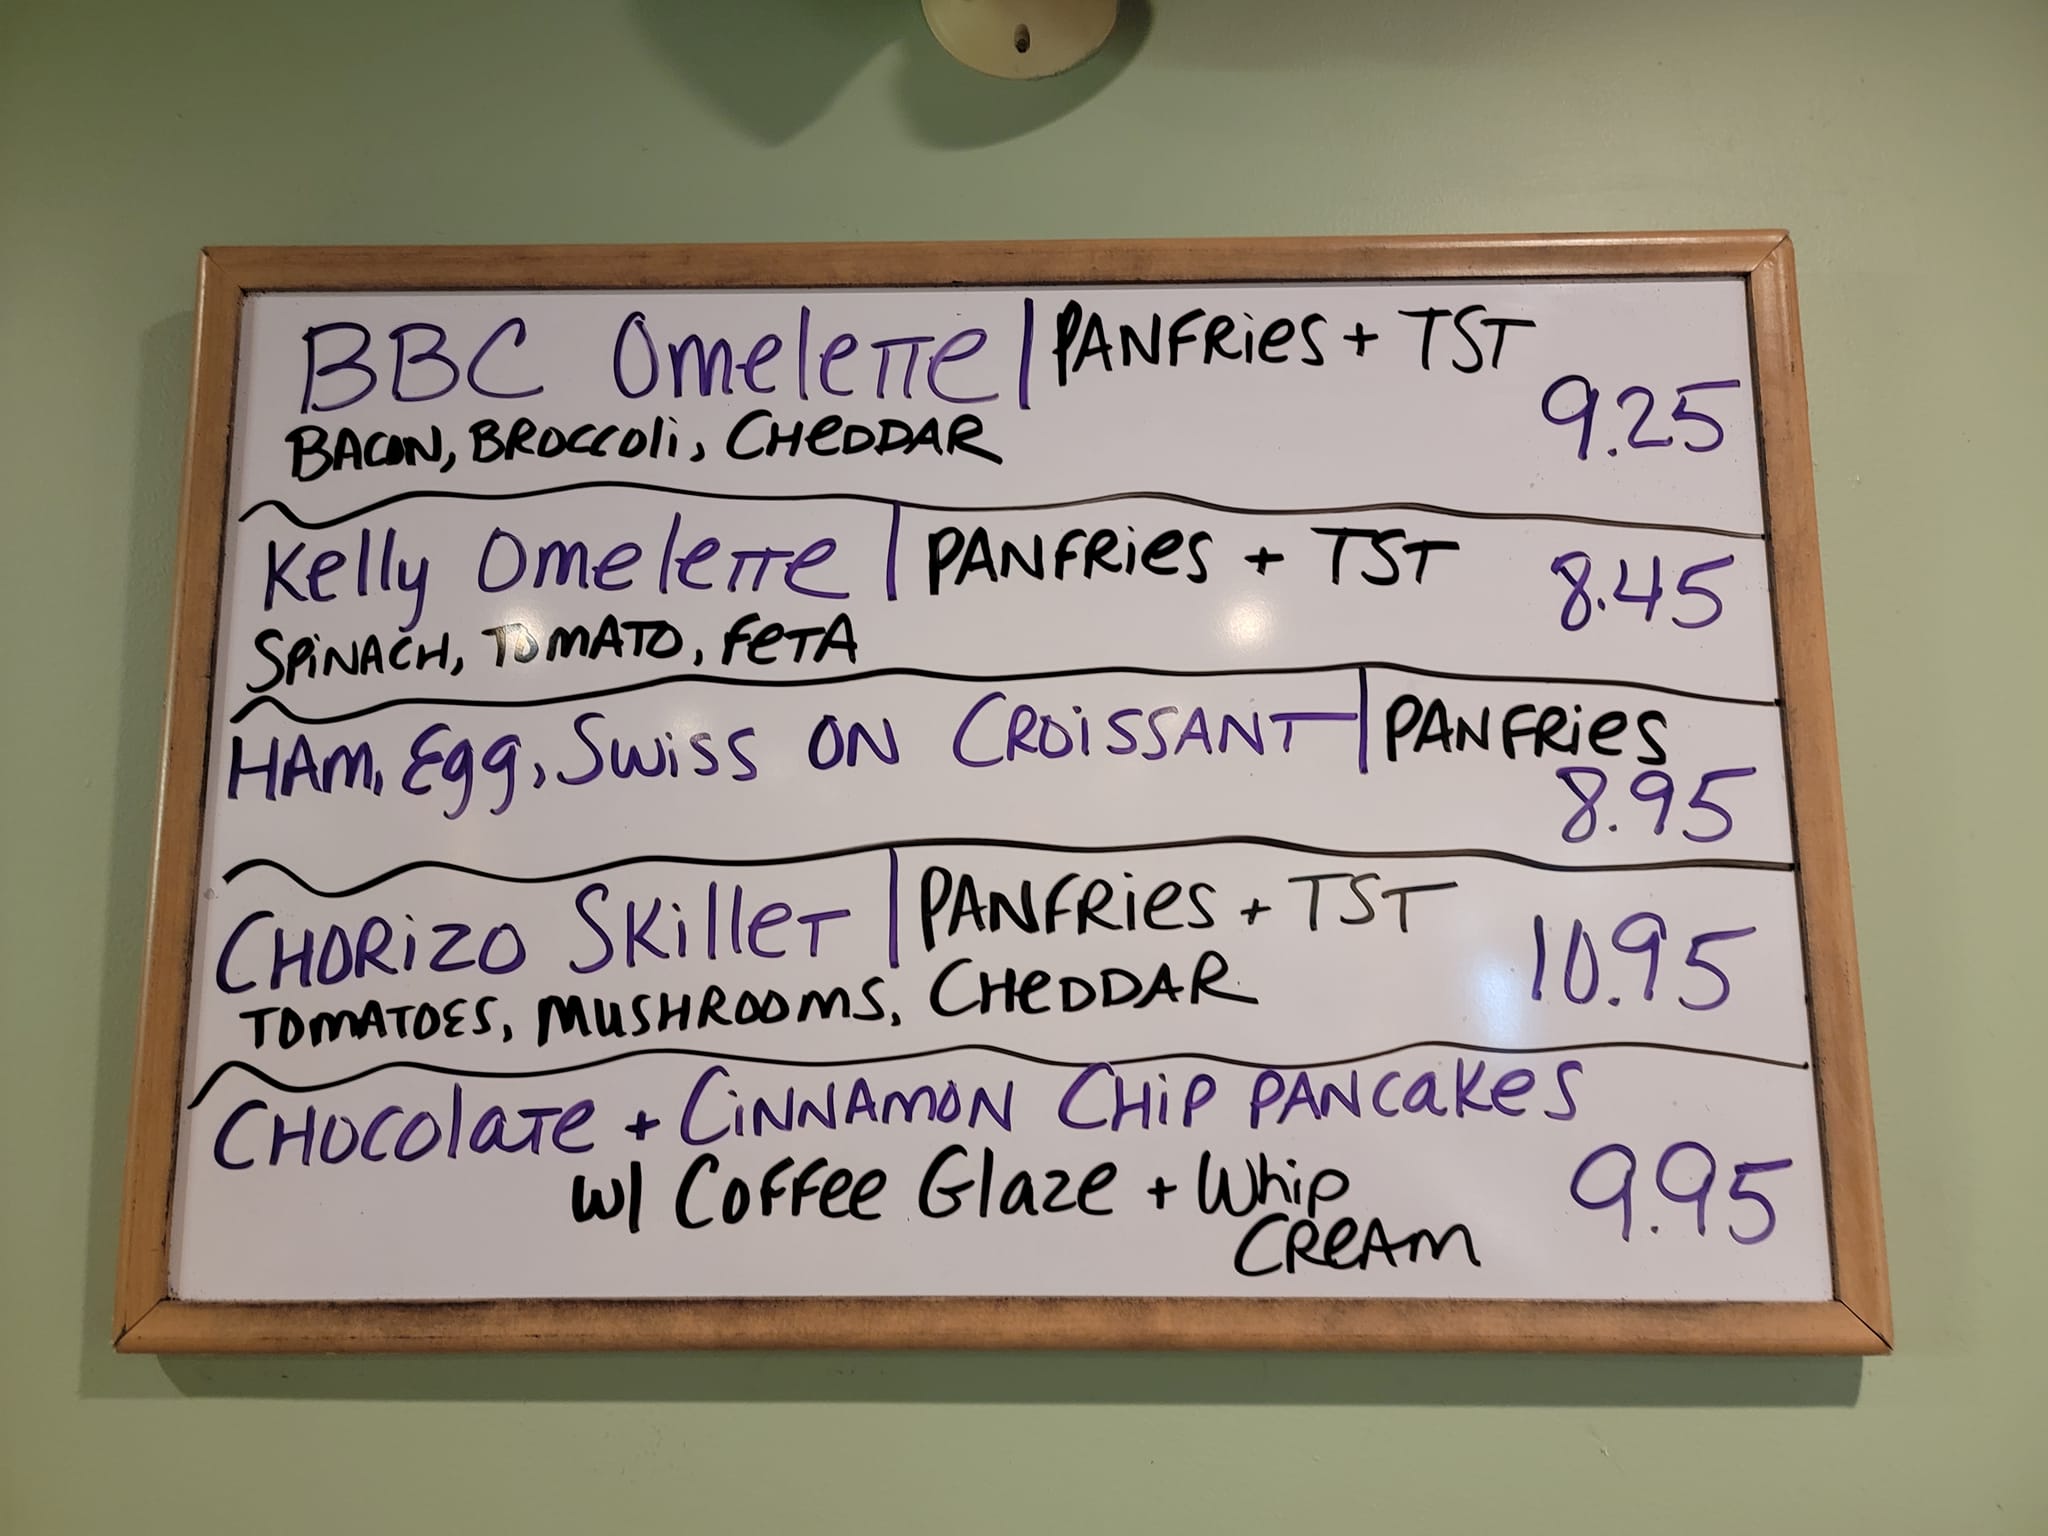 BBC Omelette | PANFRies + TST
9.25
BACON, BROCColi, CHeDDAR
Kelly Omelette | PANFRies + TST 8.45
SPiNACH, TOMATO, FeTA
HAm, Egg, Swiss ON CROiSSANT | PANFRies
8.95
CHORiZO SKilleT | PANFRies + TST 10.95
TOMATOES, MUSHROOMS, CHeDDAR
CHOColaTe + CiNNAMON CHiP PANCaKeS
w/ Coffee Glaze + Whip 9.95
CReAm